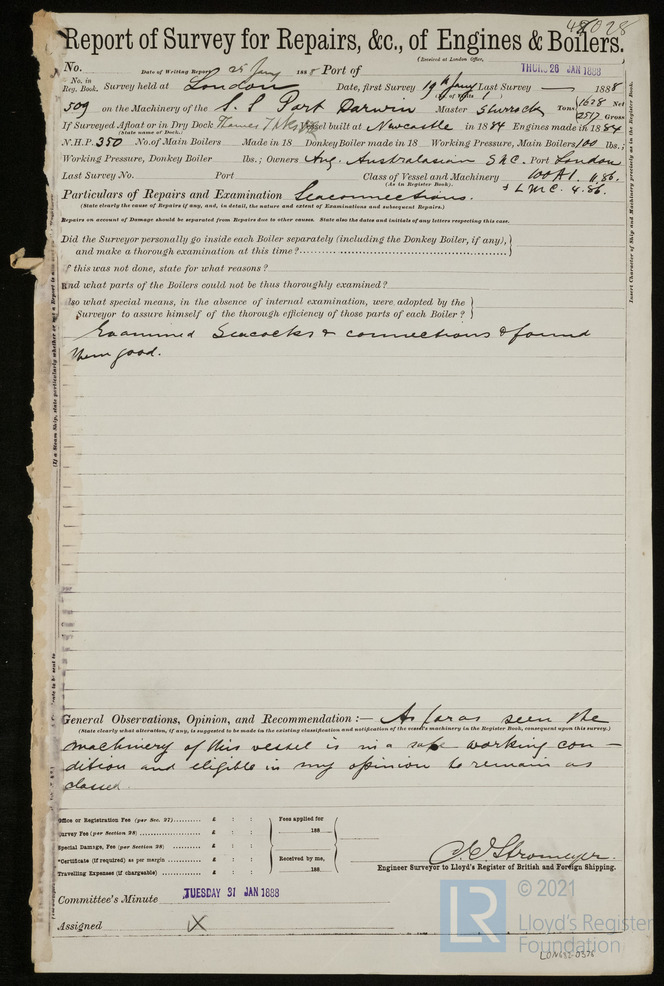 48028
Report of Survey for Repairs, &c., of Engines & Boilers.
(Received at London Office, THUR. 26 JAN 1888
No. Date of Writing Report 25 Jany 1888 Port of
No. in Reg. Book. Survey held at London Date, first Survey 19th Jany Last Survey — 1888
509 on the Machinery of the S.S. Port Darwin Master Sturrock Tons 1628 Net 2517 Gross
If Surveyed Afloat or in Dry Dock Thames Vessel built at Newcastle in 1884 Engines made in 1884
(State name of Dock.)
N.H.P. 350 No. of Main Boilers Made in 18 Donkey Boiler made in 18 Working Pressure, Main Boilers 100 lbs.;
Working Pressure, Donkey Boiler lbs.; Owners Ang. Australasian S.N.C. Port London
Last Survey No. Port Class of Vessel and Machinery 100A1. 11.86.
(As in Register Book). + LMC. 4.86.
Particulars of Repairs and Examination Seaconnections.
(State clearly the cause of Repairs if any, and, in detail, the nature and extent of Examinations and subsequent Repairs.)
Repairs on account of Damage should be separated from Repairs due to other causes. State also the dates and initials of any letters respecting this case.
Did the Surveyor personally go inside each Boiler separately (including the Donkey Boiler, if any),
and make a thorough examination at this time?
If this was not done, state for what reasons?
And what parts of the Boilers could not be thus thoroughly examined?
Also what special means, in the absence of internal examination, were adopted by the
Surveyor to assure himself of the thorough efficiency of those parts of each Boiler?
Examined Seacocks & connections & found
them good.
General Observations, Opinion, and Recommendation:— As far as seen the
(State clearly what alteration, if any, is suggested to be made in the existing classification and notification of the vessel's machinery in the Register Book, consequent upon this survey.)
machinery of this vessel is in a safe working con-
dition and eligible in my opinion to remain as
classed.
Office or Registration Fee (per Sec. 27) £ : : Fees applied for
Survey Fee (per Section 28) £ : : 188
Special Damage, Fee (per Section 28) £ : :
*Certificate (if required) as per margin £ : : Received by me,
Travelling Expenses (if chargeable) £ : : 188
C. E. Stromeyer.
Engineer Surveyor to Lloyd's Register of British and Foreign Shipping.
Committee's Minute TUESDAY 31 JAN 1888
Assigned X
LR © 2021
Lloyd's Register
Foundation
LON692-0376
Insert Character of Ship and Machinery precisely as in the Register Book.